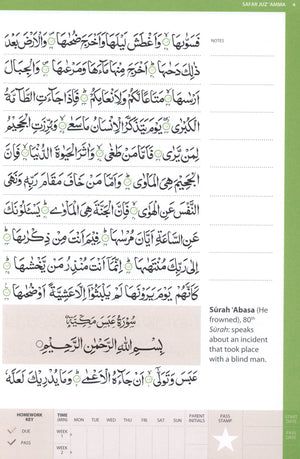 SAFAR JUZ 'AMMA
NOTES
فَسَوَّىٰهَا ۝ وَأَغْطَشَ لَيْلَهَا وَأَخْرَجَ ضُحَىٰهَا ۝ وَالْأَرْضَ بَعْدَ
ذَٰلِكَ دَحَىٰهَا ۝ أَخْرَجَ مِنْهَا مَآءَهَا وَمَرْعَىٰهَا ۝ وَالْجِبَالَ
أَرْسَىٰهَا ۝ مَتَاعًا لَّكُمْ وَلِأَنْعَامِكُمْ ۝ فَإِذَا جَآءَتِ الطَّآمَّةُ
الْكُبْرَىٰ ۝ يَوْمَ يَتَذَكَّرُ الْإِنْسَانُ مَا سَعَىٰ ۝ وَبُرِّزَتِ الْجَحِيمُ
لِمَنْ يَرَىٰ ۝ فَأَمَّا مَنْ طَغَىٰ ۝ وَآثَرَ الْحَيَوٰةَ الدُّنْيَا ۝ فَإِنَّ
الْجَحِيمَ هِيَ الْمَأْوَىٰ ۝ وَأَمَّا مَنْ خَافَ مَقَامَ رَبِّهِ وَنَهَى
النَّفْسَ عَنِ الْهَوَىٰ ۝ فَإِنَّ الْجَنَّةَ هِيَ الْمَأْوَىٰ ۝ يَسْـَٔلُونَكَ
عَنِ السَّاعَةِ أَيَّانَ مُرْسَىٰهَا ۝ فِيمَ أَنْتَ مِنْ ذِكْرَىٰهَا ۝
إِلَىٰ رَبِّكَ مُنْتَهَىٰهَا ۝ إِنَّمَآ أَنْتَ مُنْذِرُ مَنْ يَخْشَىٰهَا ۝
كَأَنَّهُمْ يَوْمَ يَرَوْنَهَا لَمْ يَلْبَثُوٓا إِلَّا عَشِيَّةً أَوْ ضُحَىٰهَا ۝
Sūrah 'Abasa (He
frowned), 80th
Sūrah: speaks
about an incident
that took place
with a blind man.
سُورَةُ عَبَسَ مَكِّيَّةٌ
بِسْمِ اللَّهِ الرَّحْمَٰنِ الرَّحِيمِ
عَبَسَ وَتَوَلَّىٰٓ ۝ أَنْ جَآءَهُ الْأَعْمَىٰ ۝ وَمَا يُدْرِيكَ لَعَلَّهُ
HOMEWORK KEY
DUE
PASS
TIME (MIN) MON TUES WED THUR FRI SAT SUN
WEEK 1
WEEK 2
PARENT INITIALS
PASS STAMP
START DATE
PASS DATE